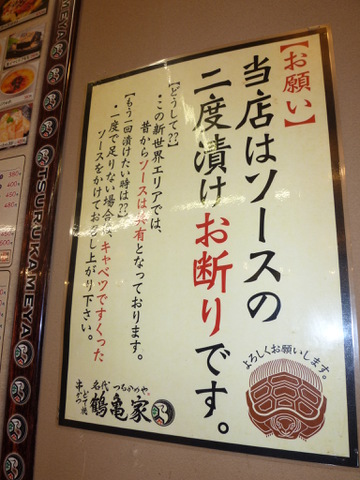 【お願い】
当店はソースの
二度漬けお断りです。
【どうして??】
・この新世界エリアでは、
昔からソースは共有となっております。
【もう一回漬けたい時は??】
・一度で足りない場合は、キャベツですくった
ソースをかけてお召し上がり下さい。
よろしくお願いします。
串かつ どて焼
名代 つるかめや
鶴亀家
TSURUKAMEYA